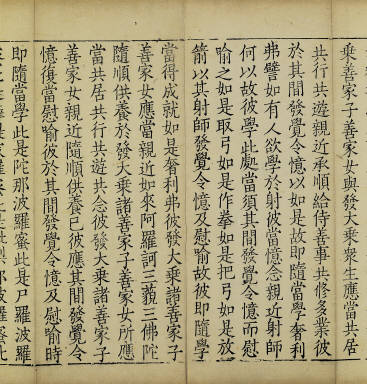 乘善家子善家女與發大乘衆生應當共居
共行共遊親近承順給侍善事共修多業彼
於其間發覺令憶以如是故即隨當學奢利
弗譬如有人欲學於射彼當憶念親近射師
何以故彼學此處當須其間發覺令憶而慰
喻之如是取弓如是作拳如是把弓如是放
箭以其射師發覺令憶及慰喻故彼即隨學
當得成就如是奢利弗彼發大乘諸善家子
善家女應當親近如來阿羅訶三藐三佛陀
隨順供養於發大乘諸善家子善家女所應
當共居共行共遊共念彼發大乘諸善家子
善家女親近隨順供養已彼應其間發覺令
憶復當慰喻彼於其間發覺令憶及慰喻時
即隨當學此是陀那波羅蜜此是尸羅波羅